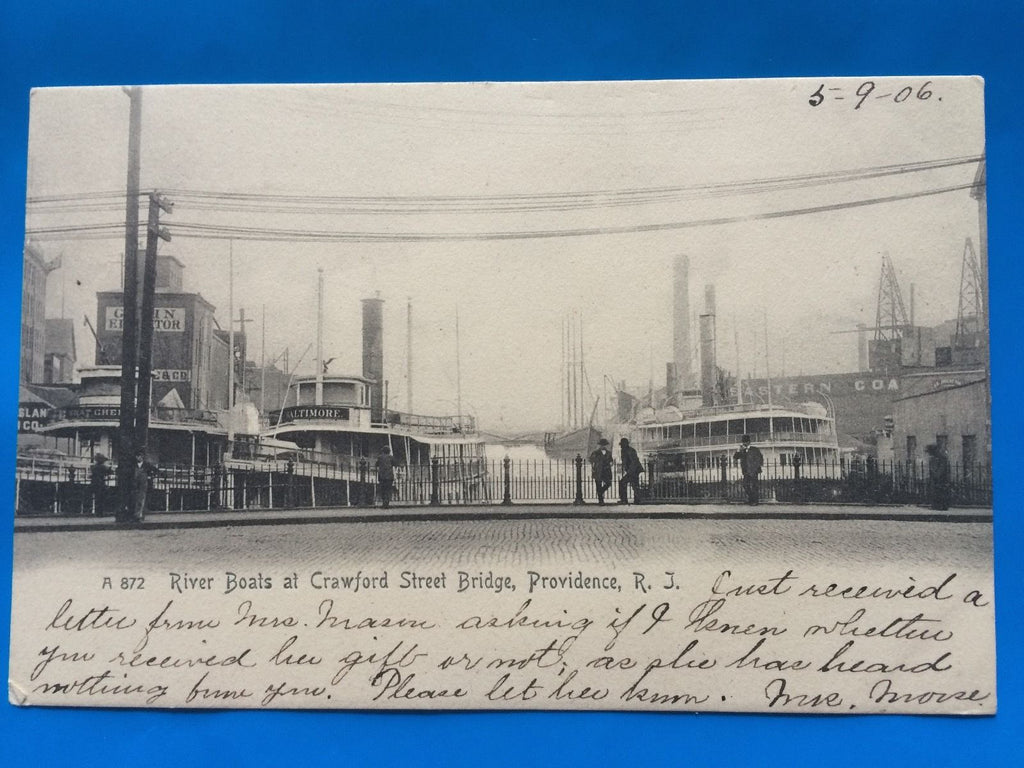 5-9-06.
EASTERN COA
BALTIMORE
& CO
SLAN
CO.
A 872 River Boats at Crawford Street Bridge, Providence, R. I.
Just received a
letter from Mrs. Mason asking if I knew whether
you received her gift or not, as she has heard
nothing from you. Please let her know. Mrs. Morse.